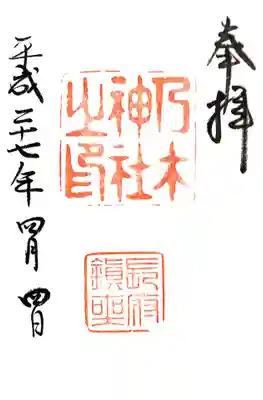 奉拝
乃木
神社
之印
長府
鎮座
平成二十七年 四月 四日